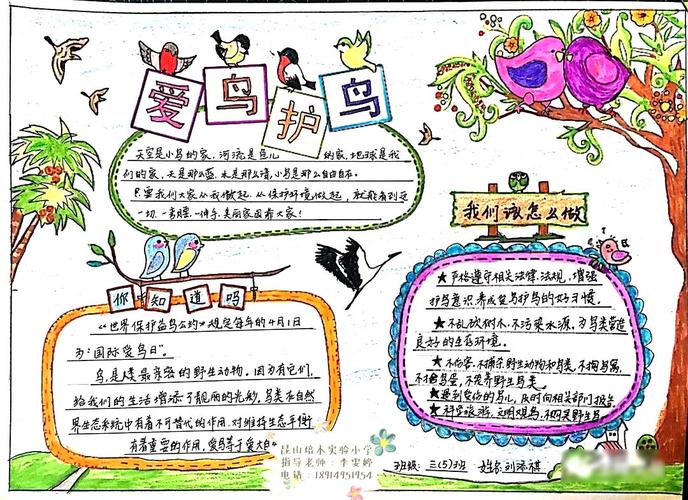 爱鸟护鸟
天空是小鸟的家，河流是鱼儿 的家，地球是我
们的家，天是那么蓝，水是那么清，小鸟是那么自由自在。
只要我们大家从我做起，从保护环境做起，就能看到这
一切
美丽家园靠大家！
我们该怎么做
★严格遵守相关法律、法规，增强
护鸟意识养成爱鸟护鸟的好习惯。
★不乱砍树木，不污染水源，为鸟类营造
良好的生存环境。
★不伤害、不捕杀野生动物和鸟类，不掏鸟窝，
不捡鸟蛋，不贩养野生鸟类。
★遇到受伤的鸟儿，及时向相关部门报告
★科学旅游，文明观鸟，不惊吓野生鸟
你知道吗
《世界保护益鸟公约》规定每年的4月1日
为“国际爱鸟日”。
鸟，是人类最亲密的野生动物。因为有它们，
给我们的生活增添了靓丽的光彩，鸟类在自然
界生态系统中有着不可替代的作用，对维持生态平衡
有着重要的作用，爱鸟等于爱大自
昆山培本实验小学
指导老师：李雯婷
电话：18914951954
班级：三(5)班 姓名：刘